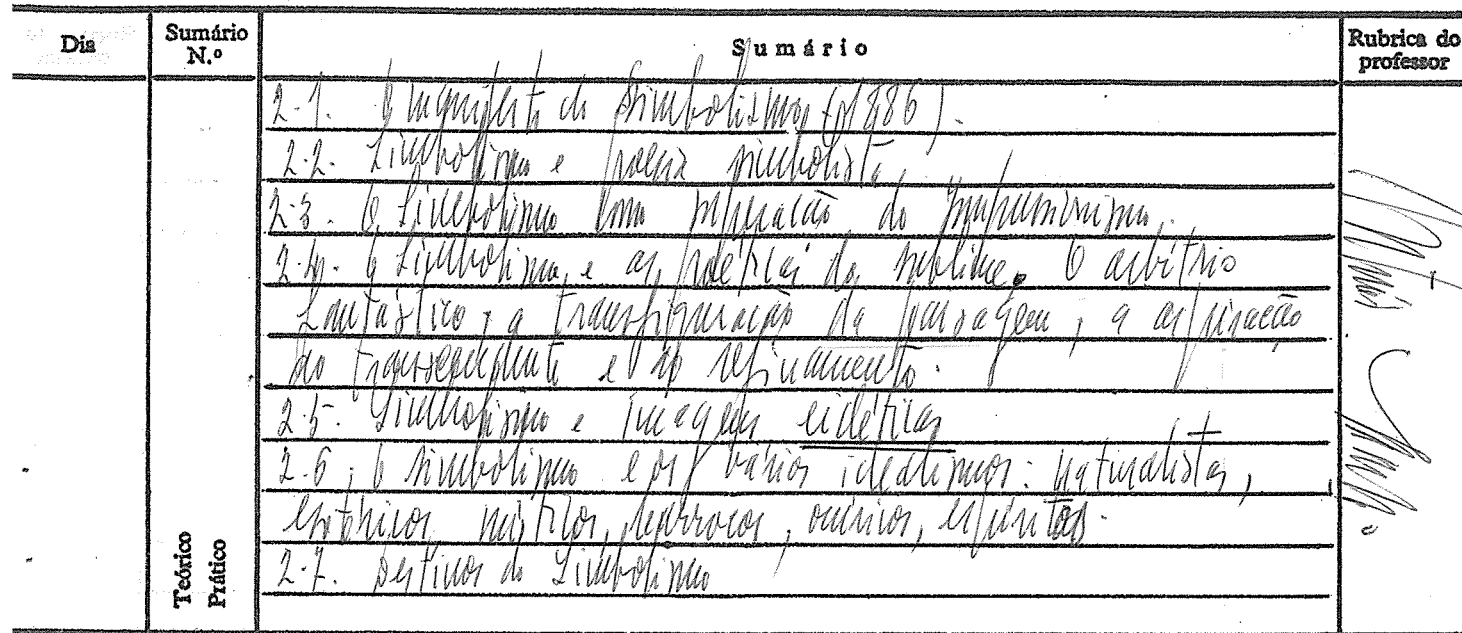 Dia
Sumário N.º
Sumário
Rubrica do professor
2-1. O manifesto do Simbolismo (1886).
2-2. Simbolismo e poesia simbolista
2-3. O Simbolismo como superação do Impressionismo.
2-4. O Simbolismo e as poéticas do sublime. O arbítrio
fantástico, a transfiguração da paisagem, a aspiração
ao transcendente e ao refinamento.
2-5. Simbolismo e imagens eidéticas
2-6. O simbolismo e os vários idealismos: naturalistas,
esotéricos, místicos, barrocos, oníricos, espíritas.
2-7. Destinos do Simbolismo
Teórico
Prático